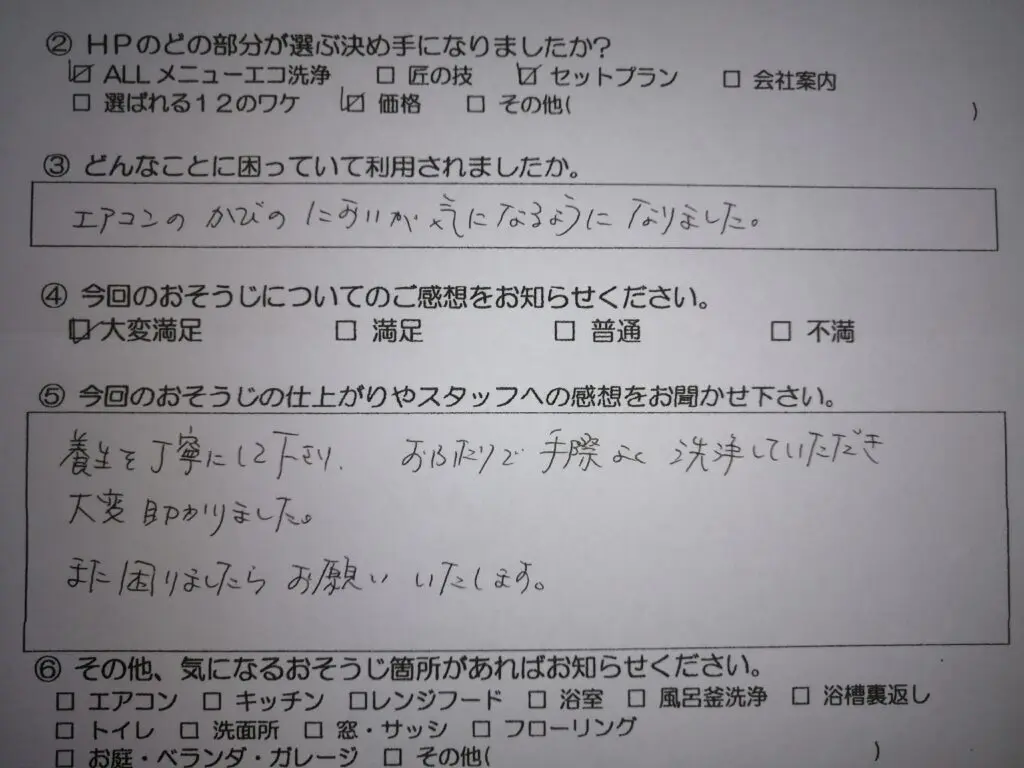 ② HPのどの部分が選ぶ決め手になりましたか?
☑ ALLメニューエコ洗浄 □ 匠の技 ☑ セットプラン □ 会社案内
□ 選ばれる12のワケ ☑ 価格 □ その他( )
③ どんなことに困っていて利用されましたか。
エアコンの かびの においが 気になるように なりました。
④ 今回のおそうじについてのご感想をお知らせください。
☑ 大変満足 □ 満足 □ 普通 □ 不満
⑤ 今回のおそうじの仕上がりやスタッフへの感想をお聞かせ下さい。
養生を丁寧にして下さり、 おふたりで 手際よく 洗浄していただき
大変 助かりました。
また 困りましたら お願い いたします。
⑥ その他、気になるおそうじ箇所があればお知らせください。
□ エアコン □ キッチン □レンジフード □ 浴室 □ 風呂釜洗浄 □ 浴槽裏返し
□ トイレ □ 洗面所 □ 窓・サッシ □ フローリング
□ お庭・ベランダ・ガレージ □ その他( )